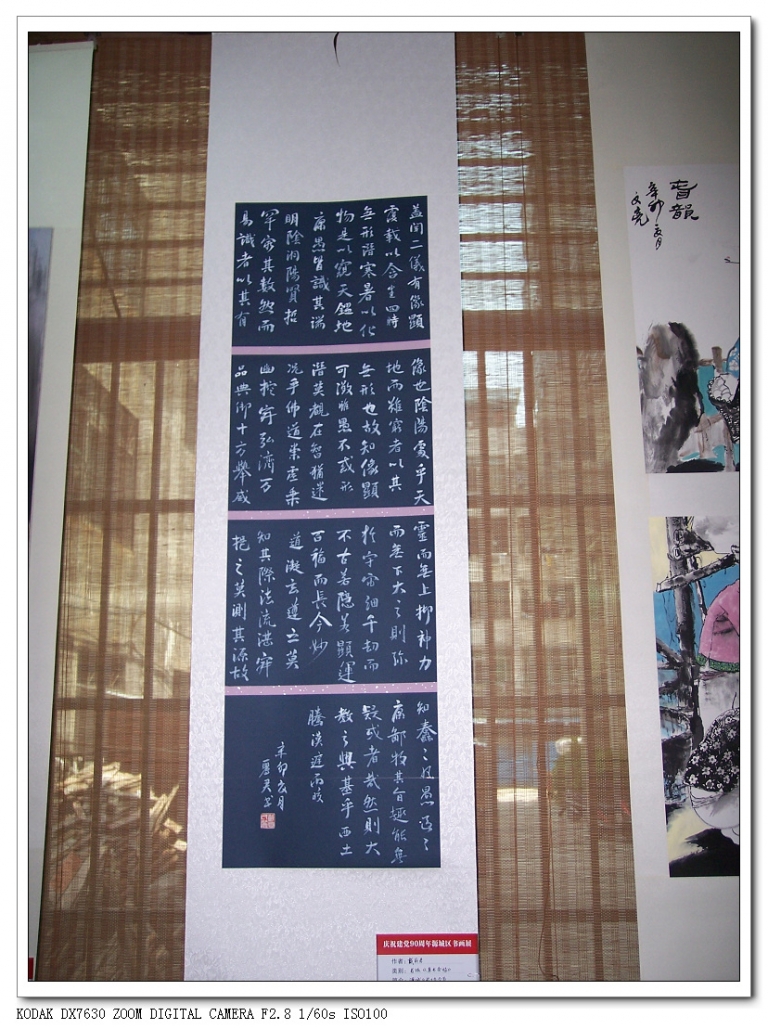 蓋闻二儀有像顯
覆載以含生四時
無形潛寒暑以化
物是以窺天鑑地
庸愚皆識其端
明陰洞陽賢哲
罕窮其數然而
易識者以其有
像也陰陽處乎天
地而難窮者以其
無形也故知像顯
可徵雖愚不惑形
潛莫覩在智猶迷
况乎佛道崇虚乘
幽控寂弘濟万
品典御十方舉威
靈而無上抑神力
而無下大之則弥
於宇宙細千劫而
不古若隱若顯運
百福而長今妙
道凝玄遵之莫
知其際法流湛寂
挹之莫測其源故
知蠢〻凡愚區〻
庸鄙投其旨趣能無
疑或者哉然則大
教之興基乎西土
騰漢庭而皎
辛卯
月
春韻
辛卯
月
文亮
庆祝建党90周年源城区书画展
作者:
KODAK DX7630 ZOOM DIGITAL CAMERA F2.8 1/60s ISO100